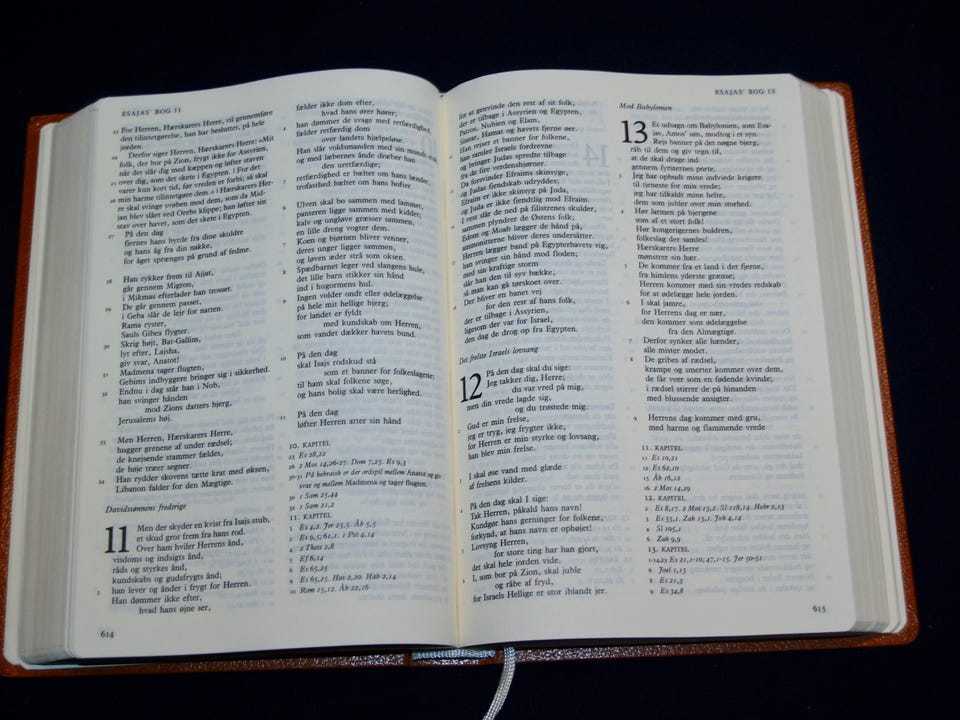 ESAJAS' BOG 11
23 For Herren, Hærskarers Herre, vil gennemføre
den tilintetgørelse, han har besluttet, på hele
jorden.
24 Derfor siger Herren, Hærskarers Herre: »Mit
folk, der bor på Zion, frygt ikke for Assyrien,
når det slår dig med kæppen og løfter staven
25 over dig, som det skete i Egypten. | For det
varer kun kort tid, før vreden er forbi; så skal
26 min harme tilintetgøre dem.« | Hærskarers Her-
re skal svinge svøben mod dem, som da Mid-
jan blev slået ved Orebs klippe; han løfter sin
stav over havet, som det skete i Egypten.
27 På den dag
fjernes hans byrde fra dine skuldre
og hans åg fra din nakke,
for åget sprænges på grund af fedme.
28 Han rykker frem til Ajjat,
går gennem Migron,
i Mikmas efterlader han trosset.
29 De går gennem passet,
i Geba slår de lejr for natten.
Rama ryster,
Sauls Gibea flygter.
30 Skrig højt, Bat-Gallim,
lyt efter, Lajsha,
giv svar, Anatot!
31 Madmena tager flugten,
Gebims indbyggere bringer sig i sikkerhed.
32 Endnu i dag står han i Nob,
han svinger hånden
mod Zions datters bjerg,
Jerusalems høj.
33 Men Herren, Hærskarers Herre,
hugger grenene af under rædsel;
de knejsende stammer fældes,
de høje træer segner.
34 Han rydder skovens tætte krat med øksen,
Libanon falder for den Mægtige.
Davidssønnens fredsrige
11 Men der skyder en kvist fra Isajs stub,
et skud gror frem fra hans rod.
2 Over ham hviler Herrens ånd,
visdoms og indsigts ånd,
råds og styrkes ånd,
kundskabs og gudsfrygts ånd;
3 han lever og ånder i frygt for Herren.
Han dømmer ikke efter,
hvad hans øjne ser,
614
fælder ikke dom efter,
hvad hans ører hører;
4 han dømmer de svage med retfærdighed,
fælder retfærdig dom
over landets hjælpeløse.
Han slår voldsmanden med sin munds stok
og med læbernes ånde dræber han
den uretfærdige;
5 retfærdighed er bæltet om hans lænder,
trofasthed bæltet om hans hofter.
6 Ulven skal bo sammen med lammet,
panteren ligge sammen med kiddet;
kalv og ungløve græsser sammen,
en lille dreng vogter dem.
7 Koen og bjørnen bliver venner,
deres unger ligger sammen,
og løven æder strå som oksen.
8 Spædbarnet leger ved slangens hule,
det lille barn stikker sin hånd
ind i hugormens hul.
9 Ingen volder ondt eller ødelæggelse
på hele mit hellige bjerg;
for landet er fyldt
med kundskab om Herren,
som vandet dækker havets bund.
10 På den dag
skal Isajs rodskud stå
som et banner for folkeslagene;
til ham skal folkene søge,
og hans bolig skal være herlighed.
11 På den dag
løfter Herren atter sin hånd
10. KAPITEL
23 Es 28,22
26 2 Mos 14,26-27. Dom 7,25. Es 9,3
30-31 På hebraisk er der ordspil mellem Anatot og giv
svar og mellem Madmena og tager flugten.
30 1 Sam 25,44
32 1 Sam 21,2
11. KAPITEL
1 Es 4,2. Jer 23,5. Åb 5,5
2 Es 9,5; 61,1. 1 Pet 4,14
4 2 Thess 2,8
5 Ef 6,14
6 Es 65,25
9 Es 65,25. Hos 2,20. Hab 2,14
10 Rom 15,12. Åb 22,16
ESAJAS' BOG 13
for at genvinde den rest af sit folk,
der er tilbage i Assyrien og Egypten,
Patros, Nubien og Elam,
Sinear, Hamat og havets fjerne øer.
Han rejser et banner for folkene,
han samler Israels fordrevne
og bringer Judas spredte tilbage
fra de fire verdenshjørner.
Da forsvinder Efraims skinsyge,
og Judas fjendskab udryddes;
Efraim er ikke skinsyg på Juda,
og Juda er ikke fjendtlig mod Efraim.
I vest slår de ned på filistrenes skulder,
sammen plyndrer de Østens folk;
Edom og Moab lægger de hånd på,
ammonitterne bliver deres undersåtter.
Herren lægger band på Egypterhavets vig,
han svinger sin hånd mod floden;
med sin kraftige storm
slår han den til syv bække,
så man kan gå tørskoet over.
Der bliver en banet vej
for den rest af hans folk,
der er tilbage i Assyrien,
ligesom der var for Israel,
den dag de drog op fra Egypten.
Det frelste Israels lovsang
12 På den dag skal du sige:
Jeg takker dig, Herre;
du var vred på mig,
men din vrede lagde sig,
og du trøstede mig.
Gud er min frelse,
jeg er tryg, jeg frygter ikke,
for Herren er min styrke og lovsang,
han blev min frelse.
I skal øse vand med glæde
af frelsens kilder.
På den dag skal I sige:
Tak Herren, påkald hans navn!
Kundgør hans gerninger for folkene,
forkynd, at hans navn er ophøjet!
Lovsyng Herren,
for store ting har han gjort,
det skal hele jorden vide.
I, som bor på Zion, skal juble
og råbe af fryd,
for Israels Hellige er stor iblandt jer.
Mod Babylonien
13 Et udsagn om Babylonien, som Esa-
jas, Amos' søn, modtog i et syn.
2 Rejs banner på det nøgne bjerg,
råb til dem og giv tegn til,
at de skal drage ind
gennem fyrsternes porte.
3 Jeg har opbudt mine indviede krigere
til tjeneste for min vrede;
jeg har tilkaldt mine helte,
dem som jubler over min storhed.
4 Hør larmen på bjergene
som af et stort folk!
Hør kongerigernes buldren,
folkeslag der samles!
Hærskarers Herre
mønstrer sin hær.
5 De kommer fra et land i det fjerne,
fra himlens yderste grænse;
Herren kommer med sin vredes redskab
for at ødelægge hele jorden.
6 I skal jamre,
for Herrens dag er nær,
den kommer som ødelæggelse
fra den Almægtige.
7 Derfor synker alle hænder,
alle mister modet.
8 De gribes af rædsel,
krampe og smerter kommer over dem,
de får veer som en fødende kvinde;
i rædsel stirrer de på hinanden
med blussende ansigter.
9 Herrens dag kommer med gru,
med harme og flammende vrede
11. KAPITEL
11 Es 10,21
12 Es 62,10
15 Åb 16,12
16 2 Mos 14,29
12. KAPITEL
2 Es 8,17. 2 Mos 15,2. Sl 118,14. Hebr 2,13
3 Es 55,1. Zak 13,1. Joh 4,14
4 Sl 105,1
6 Zak 9,9
13. KAPITEL
1-14,23 Es 21,1-10; 47,1-15. Jer 50-51
6 Joel 1,15
8 Es 21,3
9 Es 34,8
615